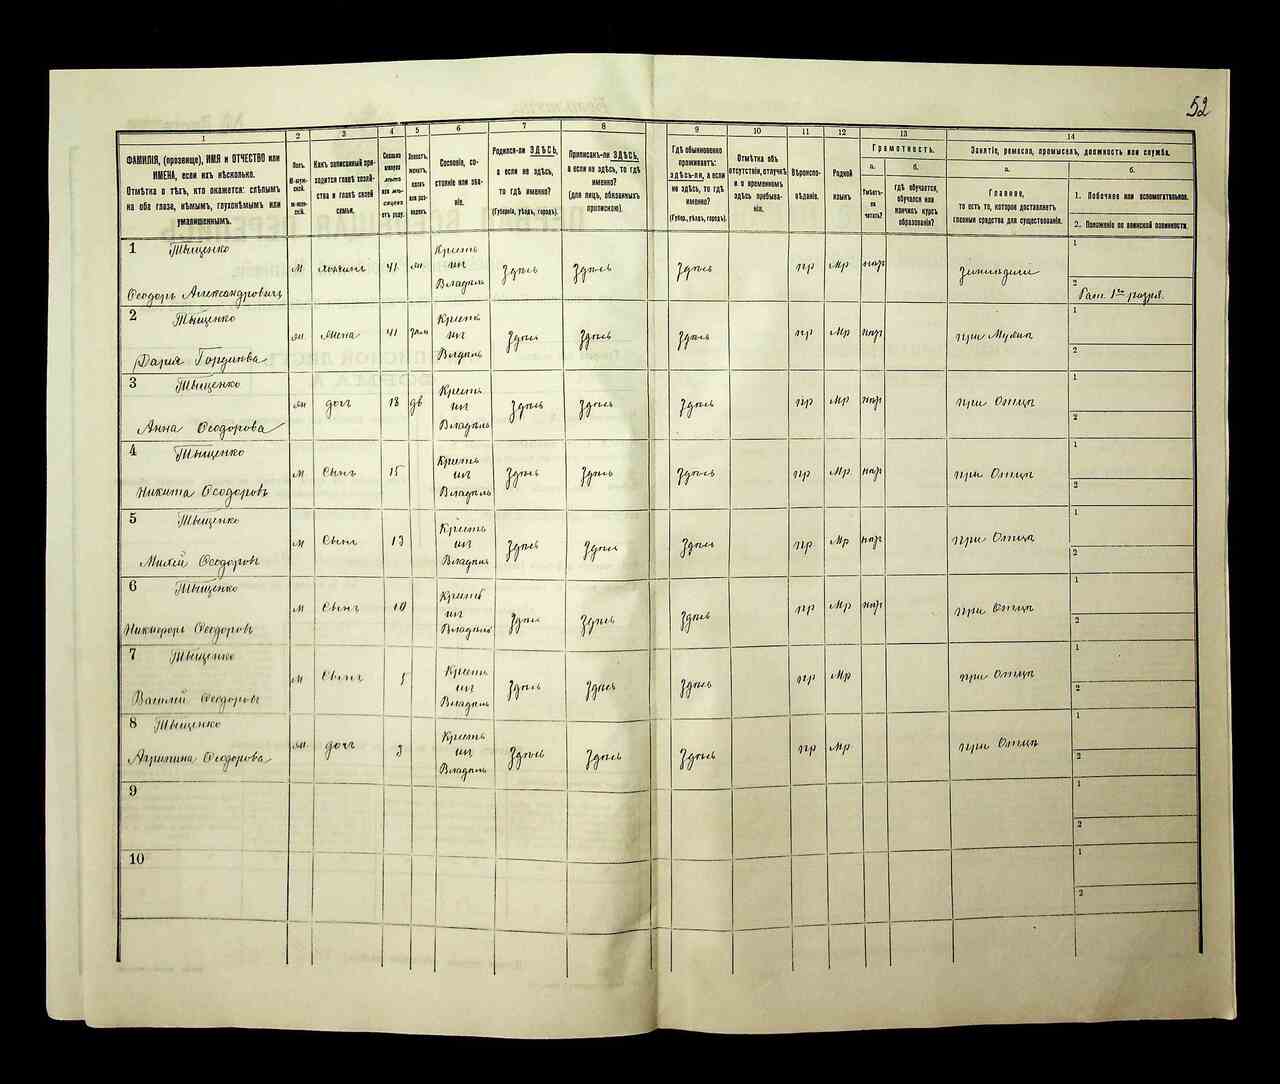 52
1
2
3
4
5
6
7
8
9
10
11
12
13
14
ФАМИЛІЯ, (прозвище), ИМЯ и ОТЧЕСТВО или
ИМЕНА, если ихъ нѣсколько.
Отмѣтка о тѣхъ, кто окажется: слѣпымъ
на оба глаза, нѣмымъ, глухонѣмымъ или
умалишеннымъ.
Полъ.
Какъ записанный при-
ходится главѣ хозяй-
ства и главѣ своей
семьи.
Сколько
минуло
лѣтъ
Сословіе, со-
стояніе или зва-
ніе.
Родился-ли ЗДѢСЬ,
а если не здѣсь,
то гдѣ именно?
(Губернія, уѣздъ, городъ).
Приписанъ-ли ЗДѢСЬ,
а если не здѣсь, то гдѣ
именно?
(для лицъ, обязанныхъ
припискою).
Гдѣ обыкновенно
проживаетъ:
здѣсь-ли, а если
не здѣсь, то гдѣ
именно?
(Губер., уѣздъ, городъ).
Отмѣтка объ
отсутствіи, отлучкѣ
и о временномъ
здѣсь пребыва-
ніи.
Вѣроиспо-
вѣданіе.
Родной
языкъ
Грамотность.
а.
б.
Умѣетъ-
ли
читать?
гдѣ обучается,
обучался или
кончилъ курсъ
образованія?
Занятіе, ремесло, промыселъ, должность или служба.
а.
б.
Главное,
то есть то, которое доставляетъ
главныя средства для существованія.
1. Побочное или вспомогательное.
2. Положеніе по воинской повинности.
1 Тыщенко
Ѳеодоръ Александровичъ
м хозяинъ 41 Крестьянинъ Владѣль здѣсь здѣсь здѣсь пр Мр нгр земледѣліе
1
2
Рат. 1го разря.
2 Тыщенко
Дарія Гордиева
жн жена 41 зам Крестьян Владѣль здѣсь здѣсь здѣсь пр Мр нгр при Мужѣ
1
2
3 Тыщенко
Анна Ѳеодорова
жн дочь 18 дв Крестьян Владѣль здѣсь здѣсь здѣсь пр Мр нгр при Отцѣ
1
2
4 Тыщенко
Никита Ѳеодоровъ
м Сынъ 15 Крестьян Владѣль здѣсь здѣсь здѣсь пр Мр нгр при Отцѣ
1
2
5 Тыщенко
Ѳеодоровъ
м Сынъ 13 Крестьян Владѣль здѣсь здѣсь здѣсь пр Мр нгр при Отцѣ
1
2
6 Тыщенко
Никифоръ Ѳеодоровъ
м Сынъ 10 Крестьян Владѣль здѣсь здѣсь здѣсь пр Мр нгр при Отцѣ
1
2
7 Тыщенко
Василій Ѳеодоровъ
м Сынъ 5 Крестьян Владѣль здѣсь здѣсь здѣсь пр Мр при Отцѣ
1
2
8 Тыщенко
Агрипина Ѳеодорова
жн дочь 3 Крестьян Владѣль здѣсь здѣсь здѣсь пр Мр при Отцѣ
1
2
9
1
2
10
1
2